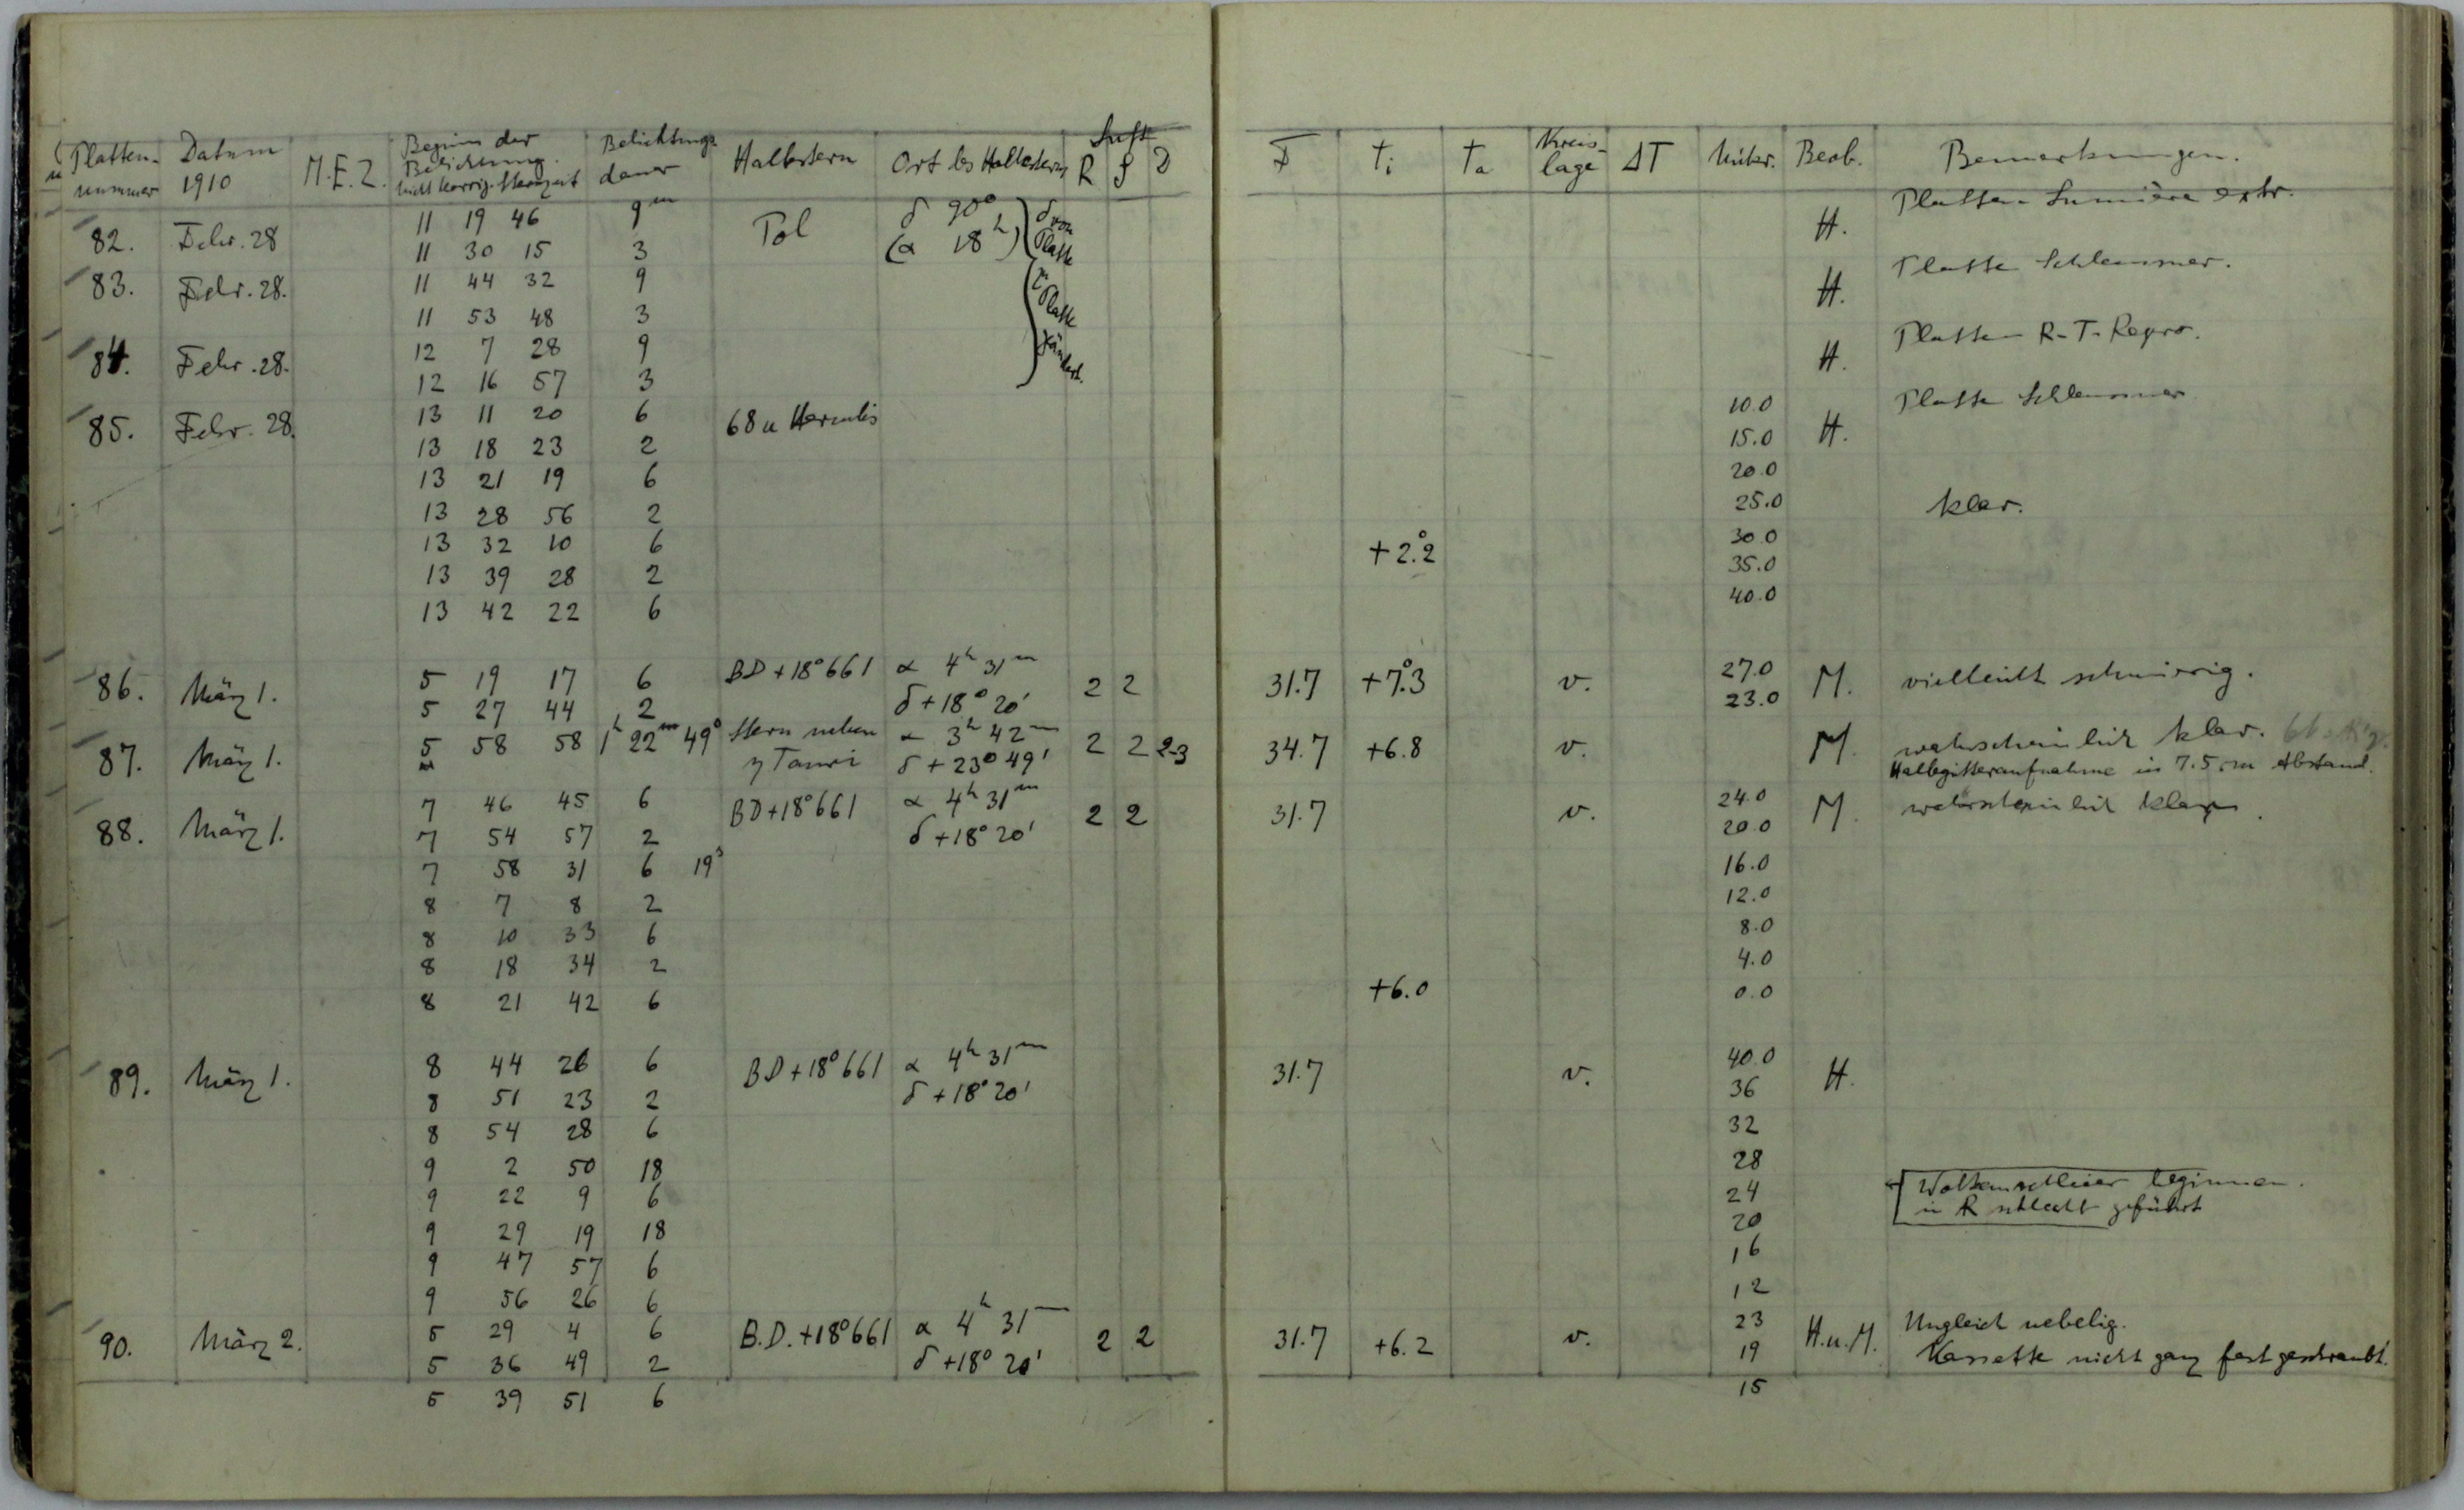 Platten- nummer Datum 1910 M.E.Z. Beginn der Belichtung. nicht korrig. Sternzeit Belichtungs dauer Haltestern Ort des Haltesterns Luft R S D F Ti Ta Kreis- lage ΔT Mikr. Beob. Bemerkungen.
82. Febr. 28 11 19 46 9m Pol δ 90° (α 18h) H. Platte Lumière extr.
11 30 15 3
83. Febr. 28. 11 44 32 9 H. Platte Schleussner.
11 53 48 3
84. Febr. 28. 12 7 28 9 H. Platte R-T-Repro.
12 16 57 3
85. Febr. 28. 13 11 20 6 68 u Herculis 10.0 H. Platte Schleussner
13 18 23 2 15.0
13 21 19 6 20.0
13 28 56 2 25.0 klar.
13 32 10 6 +2°.2 30.0
13 39 28 2 35.0
13 42 22 6 40.0
86. März 1. 5 19 17 6 BD +18°661 α 4h 31m 2 2 31.7 +7°.3 v. 27.0 M. vielleicht schmierig.
5 27 44 2 δ +18° 20' 23.0
87. März 1. 5 58 58 1h 22m 49s Stern neben α 3h 42m 2 2 2-3 34.7 +6.8 v. M. wahrscheinlich klar.
η Tauri δ +23° 49' Haltegitteraufnahme in 7.5 cm Abstand.
88. März 1. 7 46 45 6 BD+18°661 α 4h 31m 2 2 31.7 v. 24.0 M. wahrscheinlich klar.
7 54 57 2 δ +18° 20' 20.0
7 58 31 6 19s 16.0
8 7 8 2 12.0
8 10 33 6 8.0
8 18 34 2 4.0
8 21 42 6 +6.0 0.0
89. März 1. 8 44 26 6 BD +18°661 α 4h 31m 31.7 v. 40.0 H.
8 51 23 2 δ +18° 20' 36
8 54 28 6 32
9 2 50 18 28
9 22 9 6 24 Wolkenschleier beginnen.
9 29 19 18 20 in R schlecht geführt
9 47 57 6 16
9 56 26 6 12
90. März 2. 5 29 4 6 B.D. +18°661 α 4h 31m 2 2 31.7 +6.2 v. 23 H.u.M. Ungleich nebelig.
5 36 49 2 δ +18° 20' 19 Kassette nicht ganz fest geschraubt.
5 39 51 6 15